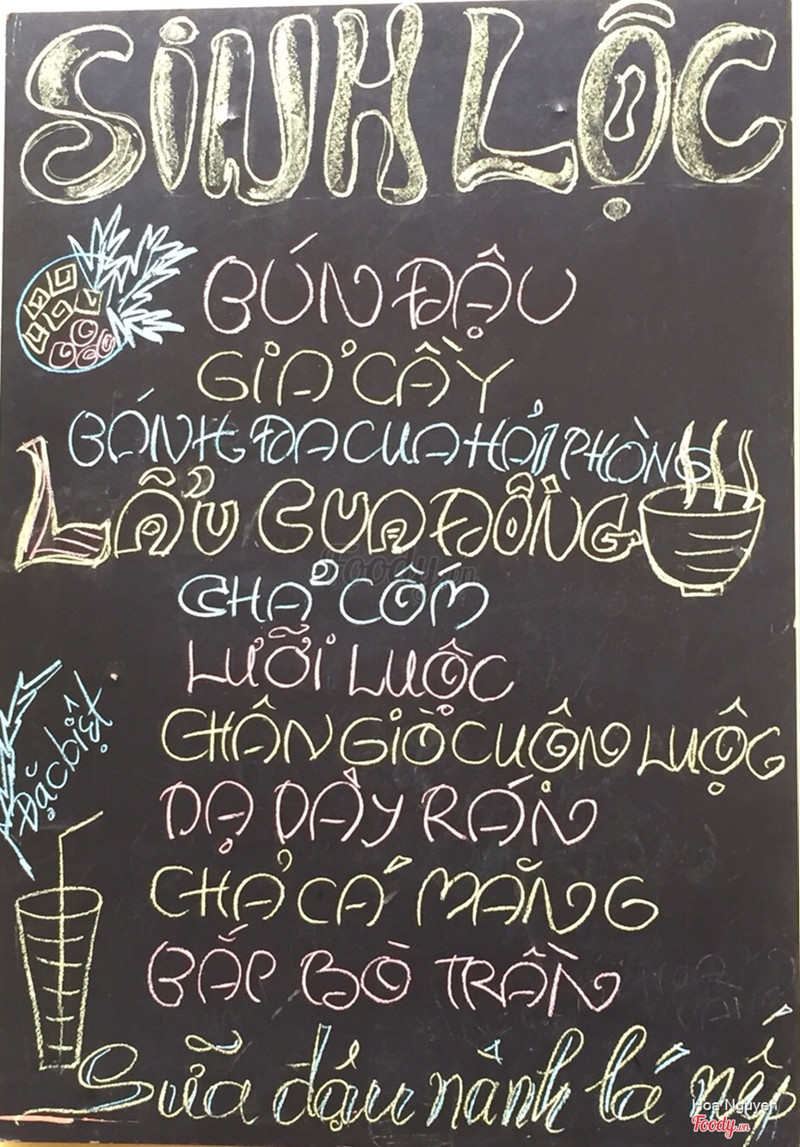 SINH LỘC
BÚN ĐẬU
GIẢ CẦY
BÁNH ĐA CUA HẢI PHÒNG
LẨU CUA ĐỒNG
CHẢ CỐM
LƯỠI LUỘC
CHÂN GIÒ CUỘN LUỘC
Đặc biệt
DẠ DẦY RÁN
CHẢ CÁ MĂNG
BẮP BÒ TRẦN
Sữa đậu nành lá nếp
Hoa Nguyen
Foody.vn